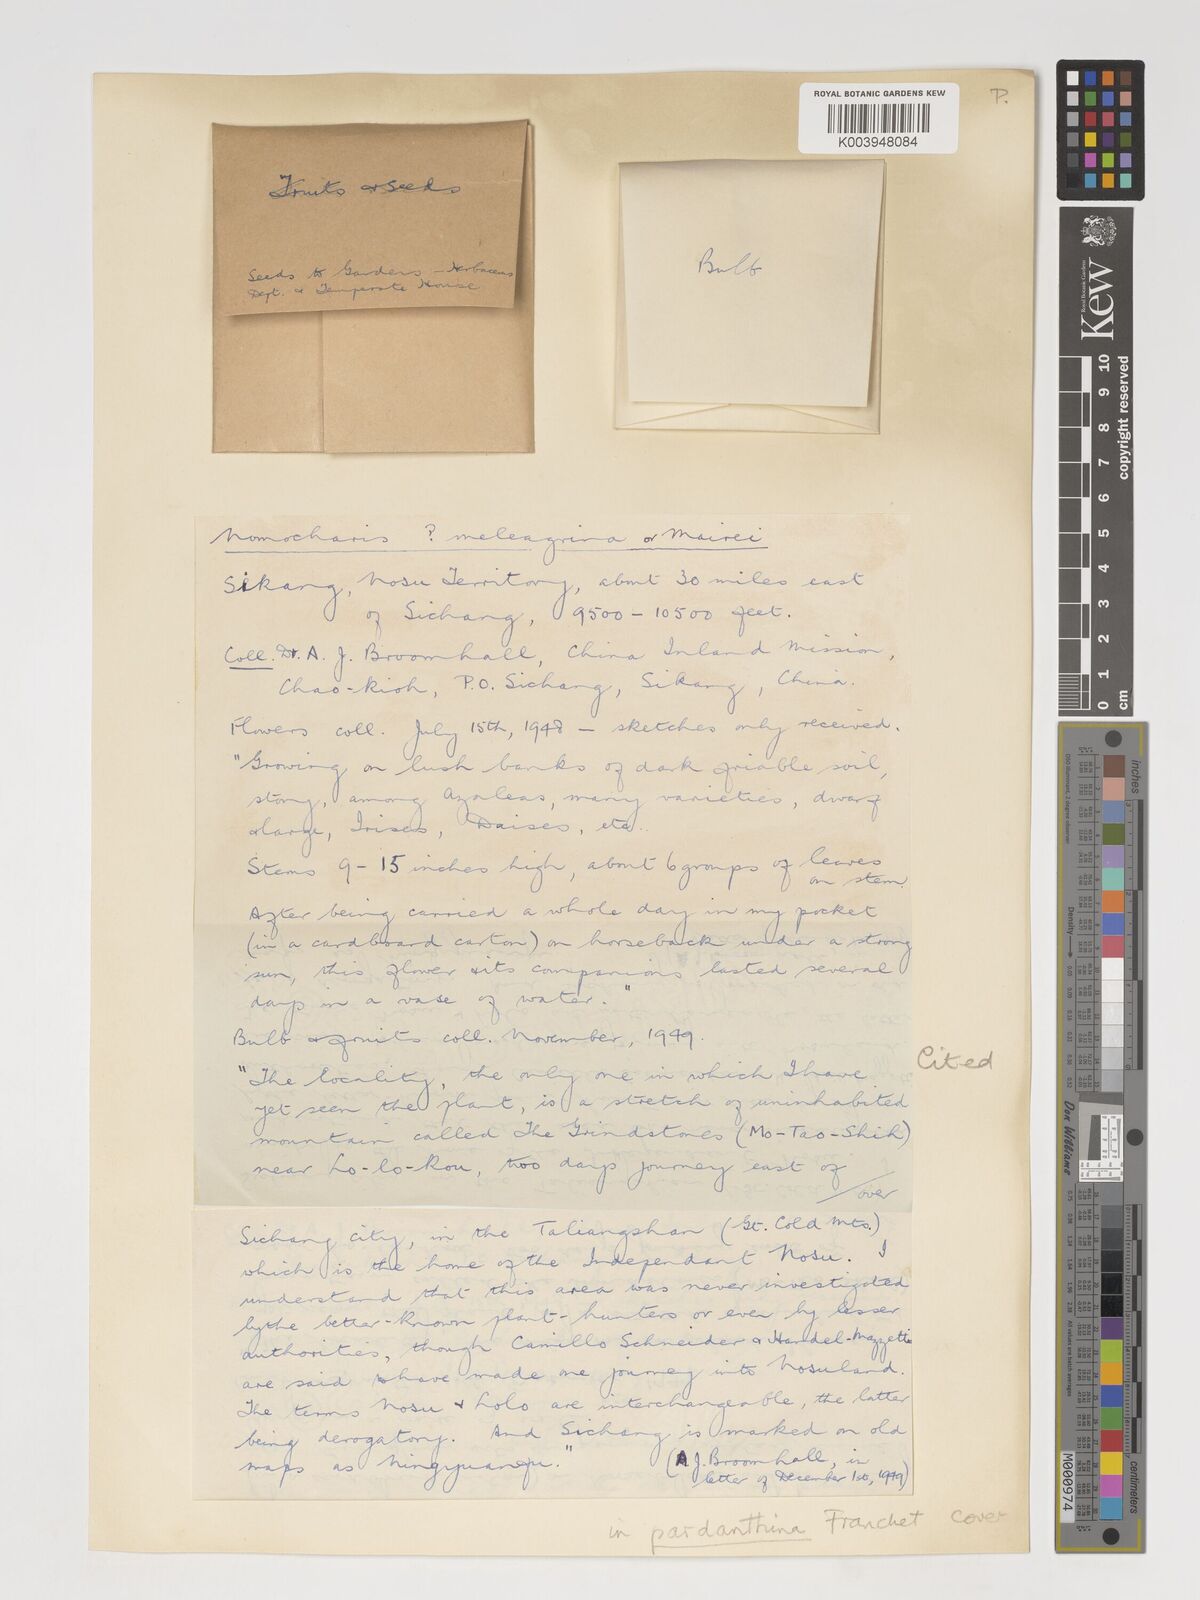 P.
ROYAL BOTANIC GARDENS KEW
K003948084
Fruits & Seeds
Seeds to Gardens – Herbaceous
Dept. & Temperate House
Bulb
Nomocharis ? meleagrina or Mairei
Sikang, Nosu Territory, about 30 miles east
of Sichang, 9500 – 10500 feet.
Coll. Dr. A. J. Broomhall, China Inland Mission,
Chao-Kioh, P.O. Sichang, Sikang, China.
Flowers coll. July 15th, 1948 – sketches only received.
"Growing on lush banks of dark friable soil,
stony, among Azaleas, many varieties, dwarf
& large, Irises, Daises, etc..
Stems 9 – 15 inches high, about 6 groups of leaves
on stem.
After being carried a whole day in my pocket
(in a cardboard carton) on horseback under a strong
sun, this flower & its companions lasted several
days in a vase of water."
Bulb & fruits coll. November, 1949.
"The locality, the only one in which I have
yet seen the plant, is a stretch of uninhabited
mountain called The Grindstones (Mo-Tao-Shih)
near Lo-lo-Kou, two days journey east of
/over
Cited
Sichang city, in the Taliangshan (Gt. Cold Mts.)
which is the home of the Independant Nosu. I
understand that this area was never investigated
by the better-known plant-hunters or even by lesser
authorities, though Camillo Schneider & Handel-Mazzetti
are said to have made one journey into Nosuland.
The terms Nosu & Lolo are interchangeable, the latter
being derogatory. And Sichang is marked on old
maps as Ningyuanfu."
(A. J. Broomhall, in
letter of December 1st, 1949)
in pardanthina Franchet cover
Kew
Royal Botanic Gardens
copyright reserved
0 1 2 3 4 5 6 7 8 9 10
cm
inches
centimeters
Density
Don Williams
M000974